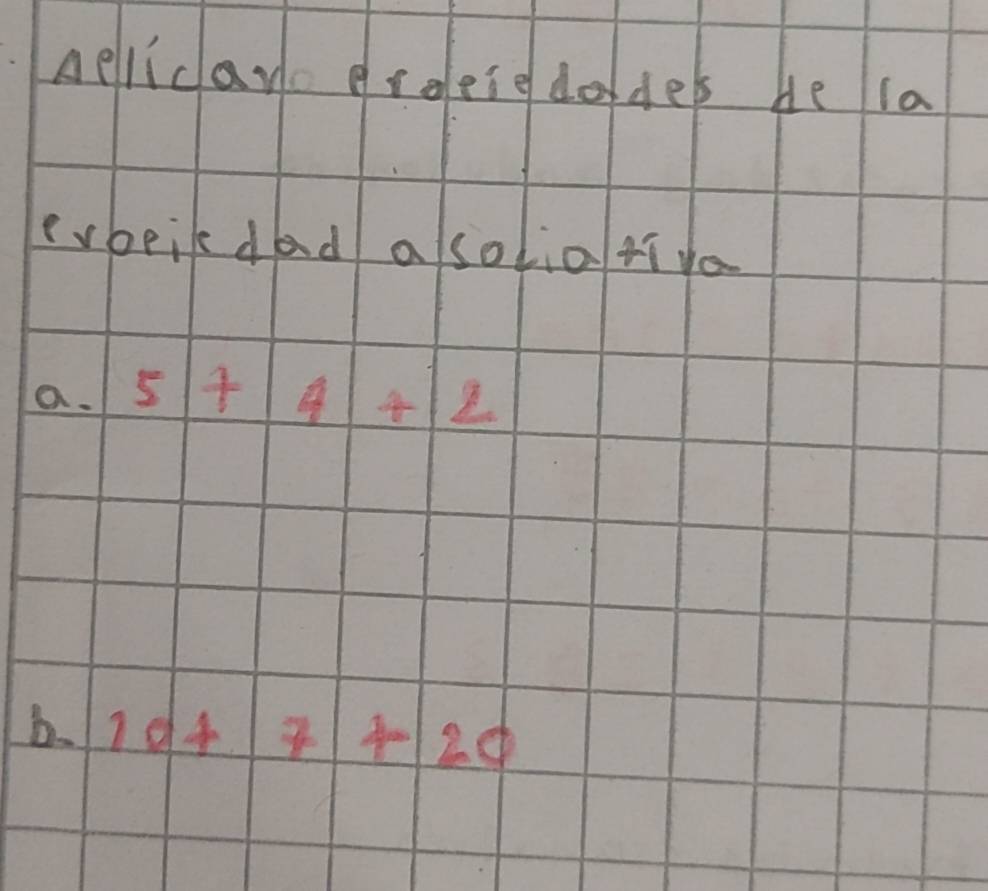 Aplicar propiedades de la
propiedad asociativa
a. 5 + 4 + 2
b. 10 + 7 + 20